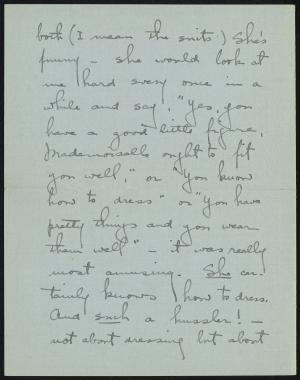 both (I mean the suits.) She's
funny – she would look at
me hard every once in a
while and say, "Yes, you
have a good little figure,
Mademoiselle ought to fit
you well," or "You know
how to dress" or "You have
pretty things and you wear
them well" – it was really
most amusing. She cer-
tainly knows how to dress.
And such a hussler! –
not about dressing but about